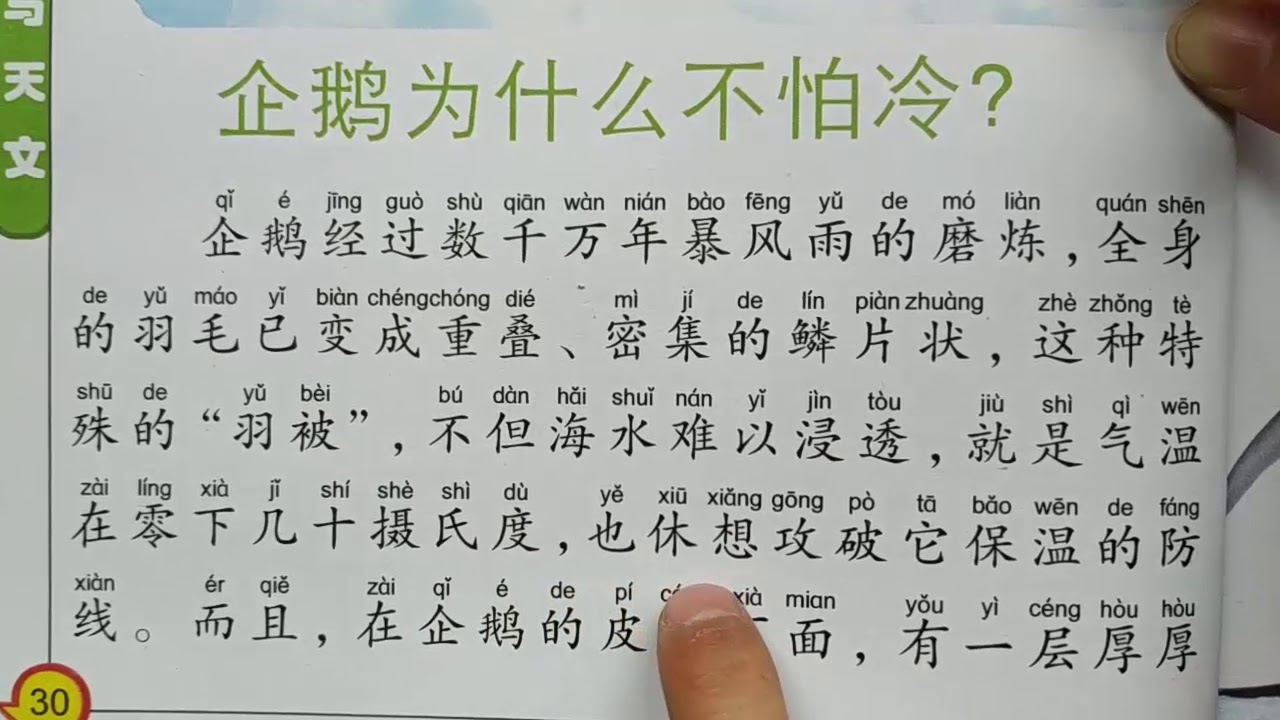 天
文
企鹅为什么不怕冷?
qǐ é jīng guò shù qiān wàn nián bào fēng yǔ de mó liàn quán shēn
企鹅经过数千万年暴风雨的磨炼，全身
de yǔ máo yǐ biàn chéng chóng dié mì jí de lín piàn zhuàng zhè zhǒng tè
的羽毛已变成重叠、密集的鳞片状，这种特
shū de yǔ bèi bú dàn hǎi shuǐ nán yǐ jìn tòu jiù shì qì wēn
殊的“羽被”，不但海水难以浸透，就是气温
zài líng xià jǐ shí shè shì dù yě xiū xiǎng gōng pò tā bǎo wēn de fáng
在零下几十摄氏度，也休想攻破它保温的防
xiàn ér qiě zài qǐ é de pí xià mian yǒu yì céng hòu hòu
线。而且，在企鹅的皮 面，有一层厚厚
30